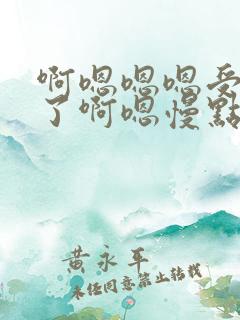 啊嗯嗯嗯受
了啊嗯慢點
黄永平
未经同意禁止转载